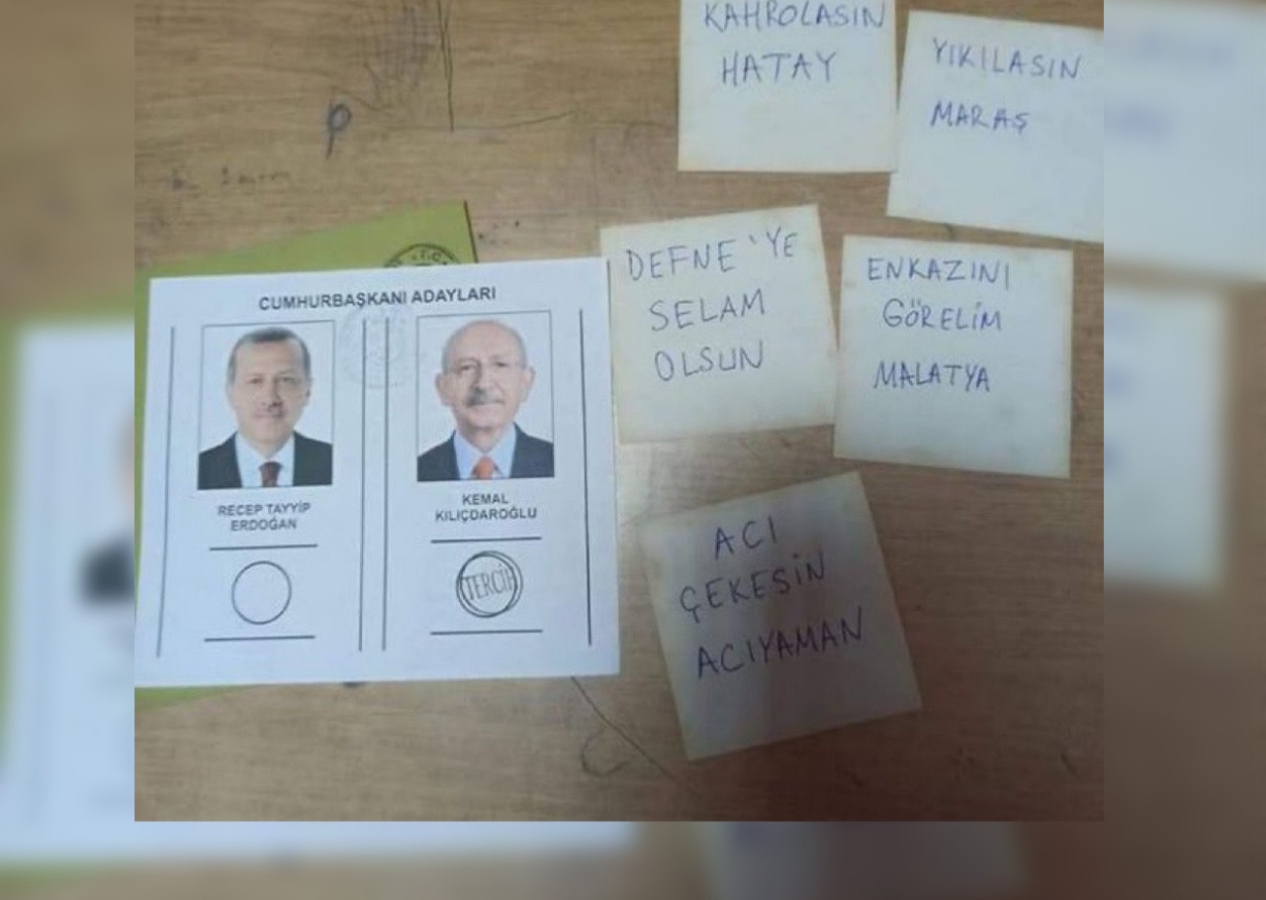 KAHROLASIN
HATAY
YIKILASIN
MARAŞ
DEFNE'YE
SELAM
OLSUN
ENKAZINI
GÖRELİM
MALATYA
ACI
ÇEKESİN
ACIYAMAN
CUMHURBAŞKANI ADAYLARI
RECEP TAYYİP
ERDOĞAN
KEMAL
KILIÇDAROĞLU
TERCİH